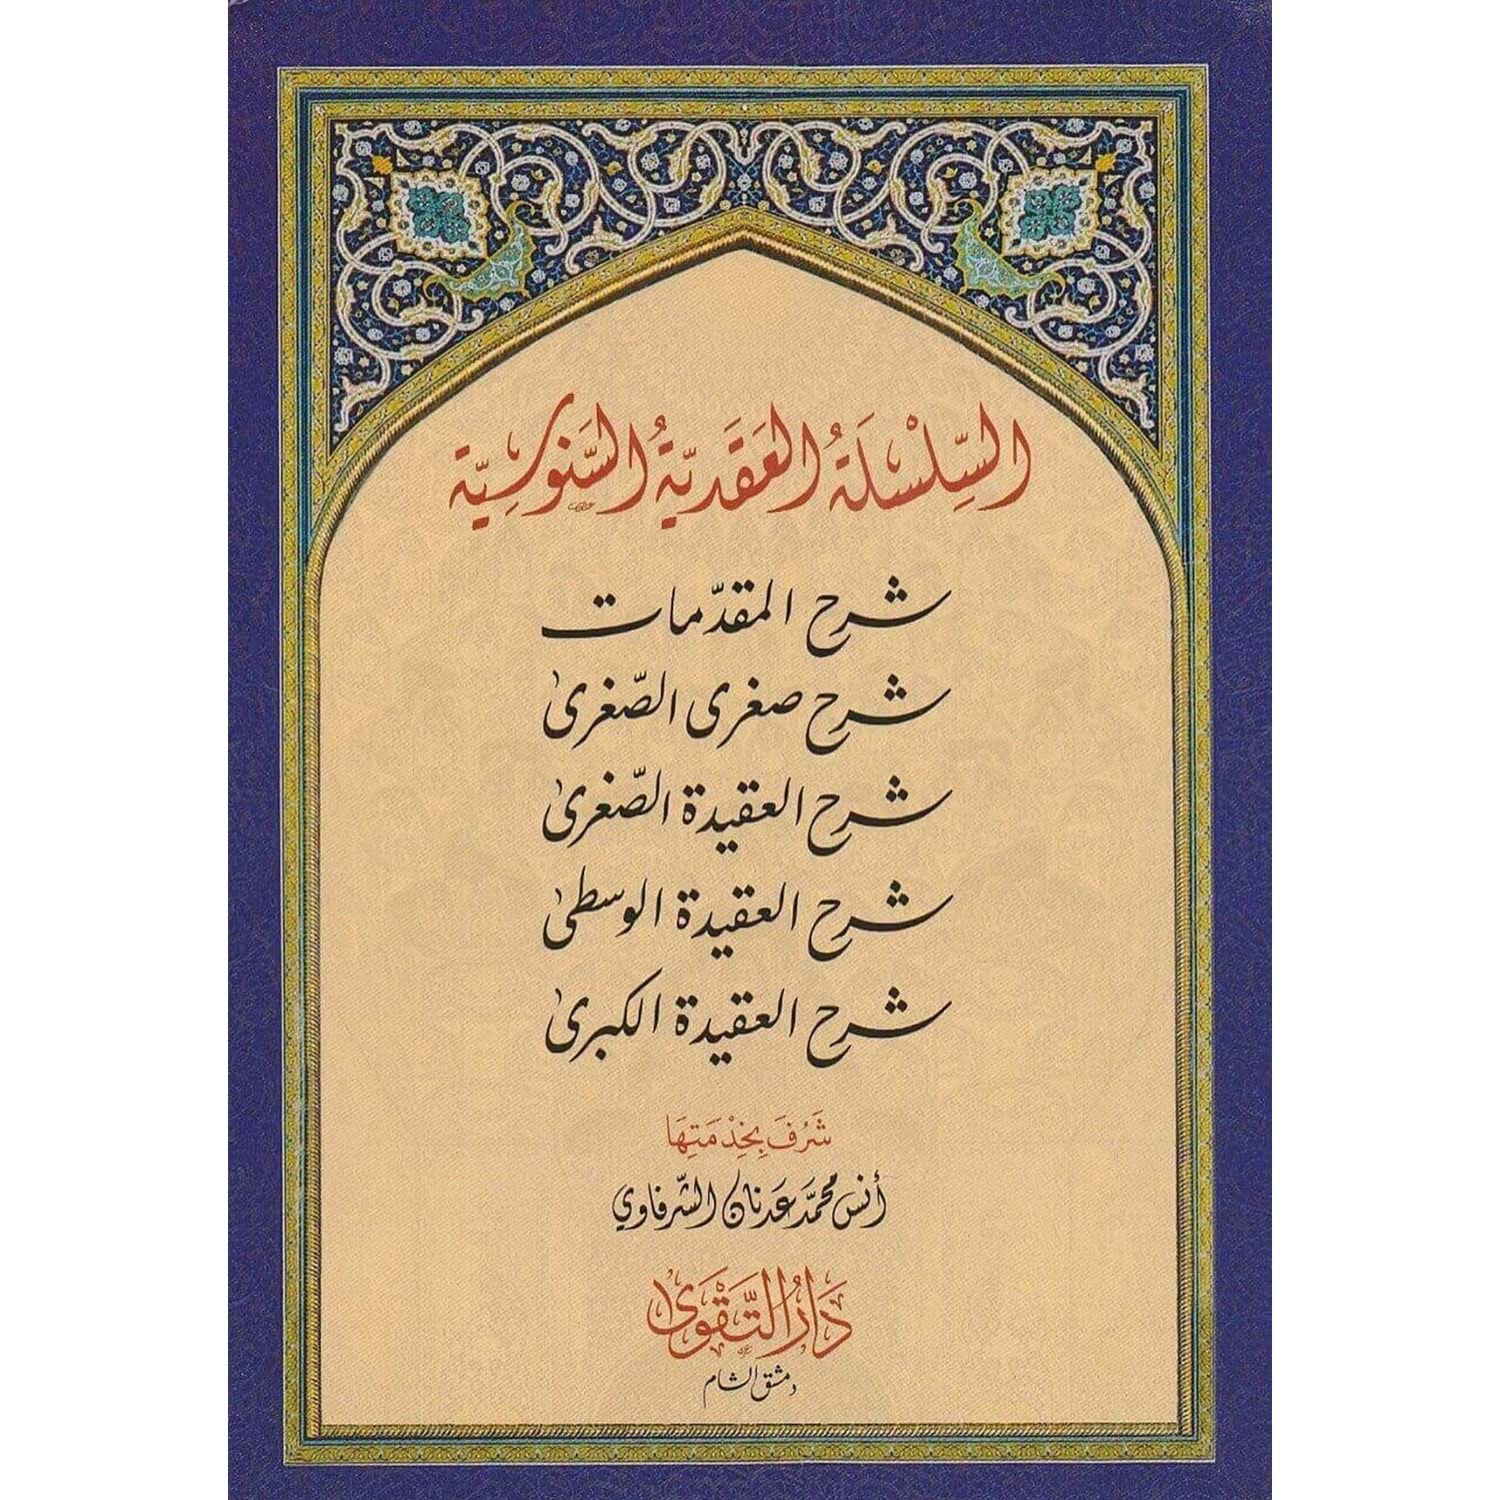 السِّلْسِلَةُ العَقَدِيَّةُ السَّنُوسِيَّة
شرح المقدّمات
شرح صغرى الصّغرىٰ
شرح العقيدة الصّغرىٰ
شرح العقيدة الوسطىٰ
شرح العقيدة الكبرىٰ
شَرُفَ بِخِدْمَتِهَا
أنس محمّد عدنان الشّرفاوي
دَارُ التَّقْوَىٰ
دمشق الشام